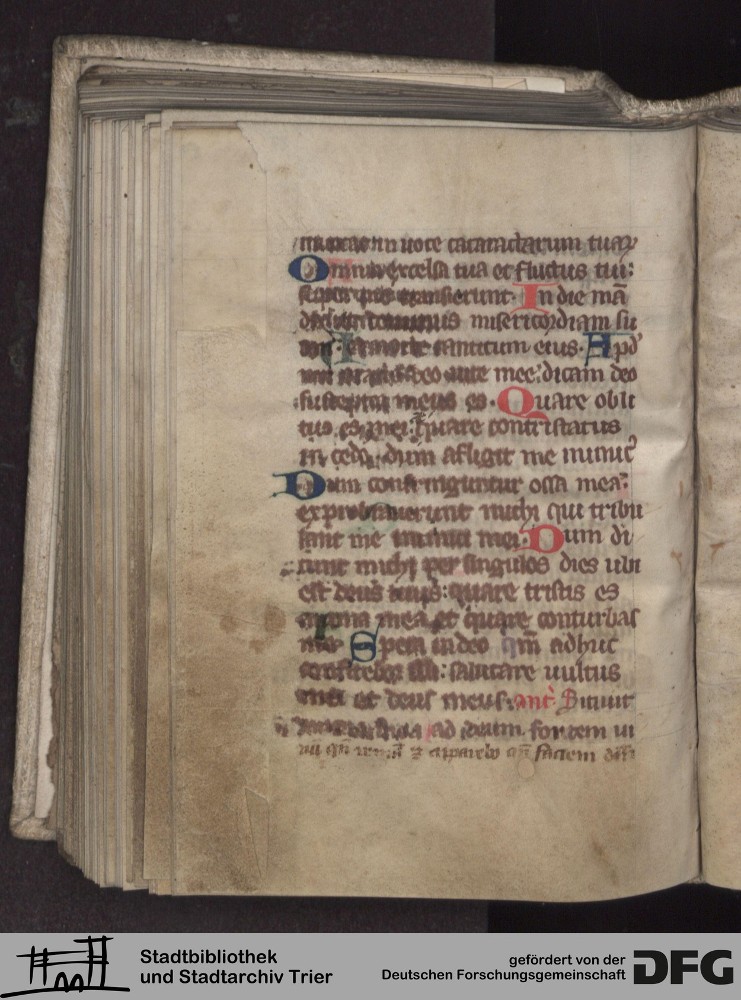 in voce cataractarum tuaꝝ
Omnia excelsa tua et fluctus tui:
super me transierunt. In die mā
dominus misericordiam su
nocte canticum eius. Apd̕
me deo vite mee: dicam deo
susceptor meus es. Quare obli
tus es mei: quare contristatus
incedo, dum afligit me inimic᷒
Dum confringuntur ossa mea:
exprobraverunt michi qui tribu
lant me inimici mei. Dum di
cunt michi per singulos dies ubi
est deus tuus: quare tristis es
anima mea et quare conturbas
me Spera in deo qm̄ adhuc
confitebor illi: salutare vultus
mei et deus meus. ant̄. Sitivit
anima mea ad deum fontem vi
vū et apparebo an̄ faciem
Stadtbibliothek
und Stadtarchiv Trier
gefördert von der
Deutschen Forschungsgemeinschaft
DFG